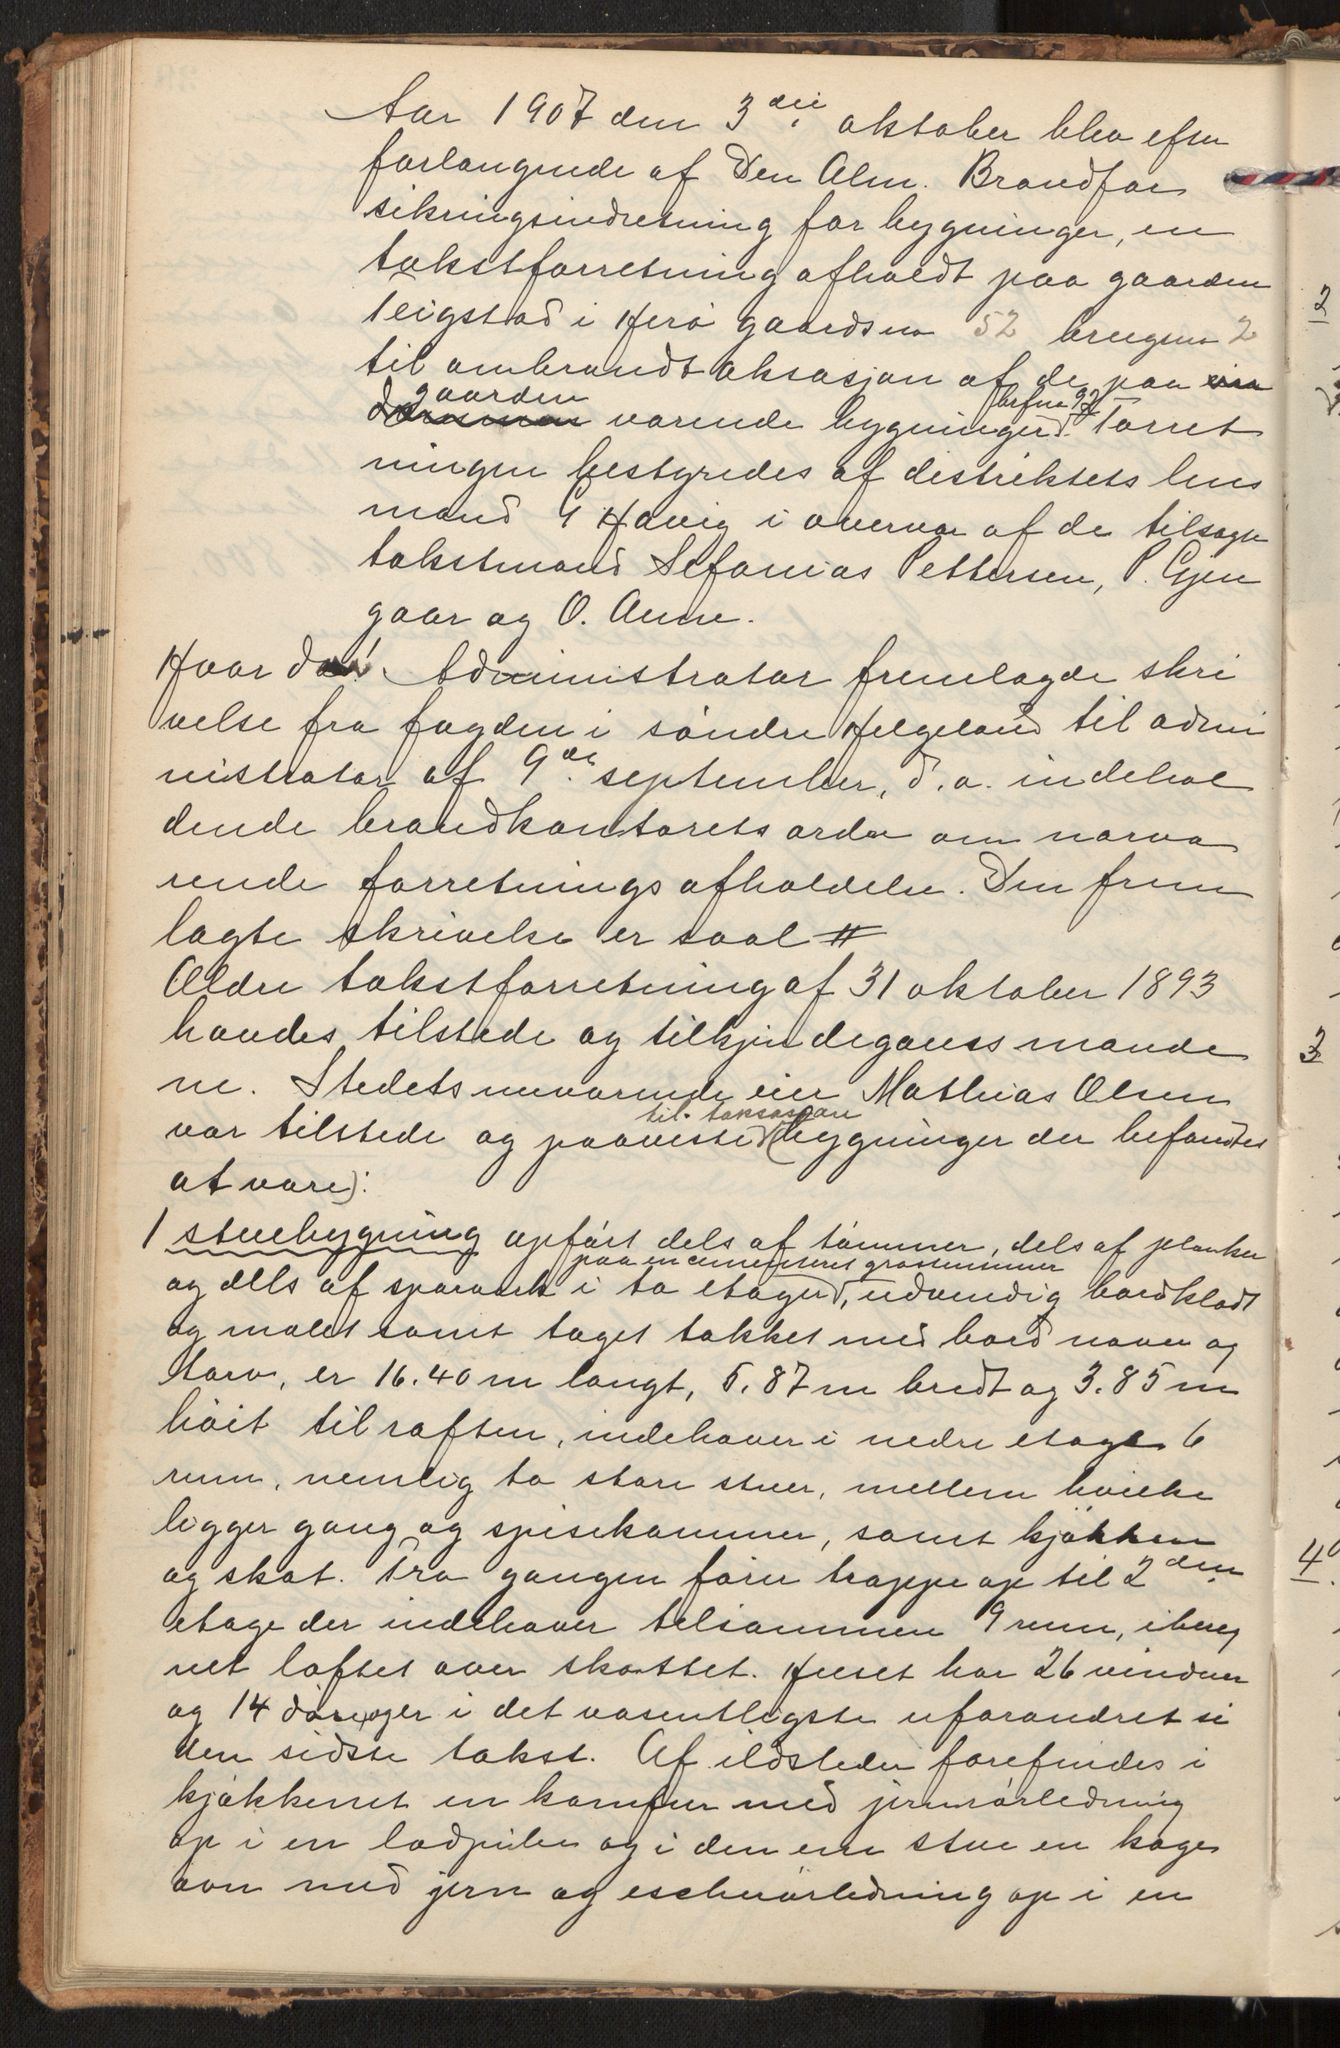 Aar 1907 den 3die oktober blev efter
forlangende af Den Alm. Brandfor
sikringsindretning for bygninger, en
takstforretning afholdt paa gaarden
Teigstad i Herø gaardsno 52 brugsno 2
til ombrandtaksasjon af de paa
gaarden
værende bygninger. Forret
ningen bestyredes af distriktets lens
mand G Havig i overvær af de tilsagte
takstmænd Sefanias Pettersen, P. Gjen
gaar og O. Aune.
Hvor da! Administrator fremlagde skri
velse fra fogden i søndre Helgeland til admi
nistrator af 9de september, d.a. indehol
dende brandkontorets ordre om nærvæ
rende forretnings afholdelse. Den frem
lagte skrivelse er saal #
Ældre takstforretning af 31 oktober 1893
havdes tilstede og tilkjendegaves mænde
ne. Stedets nuværende eier Mathias Olsen
til taksasjon
var tilstede og paaviste bygninger der befandtes
at være):
1 stuebygning opført dels af tømmer, dels af planker
paa en cementeret graastensmur
og dels af sparværk i to etager, udvendig bordklædt
og malet samt taget tækket med bord næver og
torv, er 16.40 m langt, 5.87 m bredt og 3.85 m
høit til raften, indehaver i nedre etage 6
rum, nemlig to store stuer, mellem hvilke
ligger gang og spisekammer, samt kjøkken
og skot. Fra gangen fører trappe op til 2den
etage der indehaver tilsammen 9 rum, ibereg
net loftet over skottet. Huset har 26 vinduer
og 14 døre, og er i det væsentligste uforandret si
den sidste takst. Af ildsteder forefindes i
kjøkkenet en komfur med jernrørledning
op i en lodpibe og i den ene stue en koge
ovn med jern og eschenrørledning op i en
2
3
4